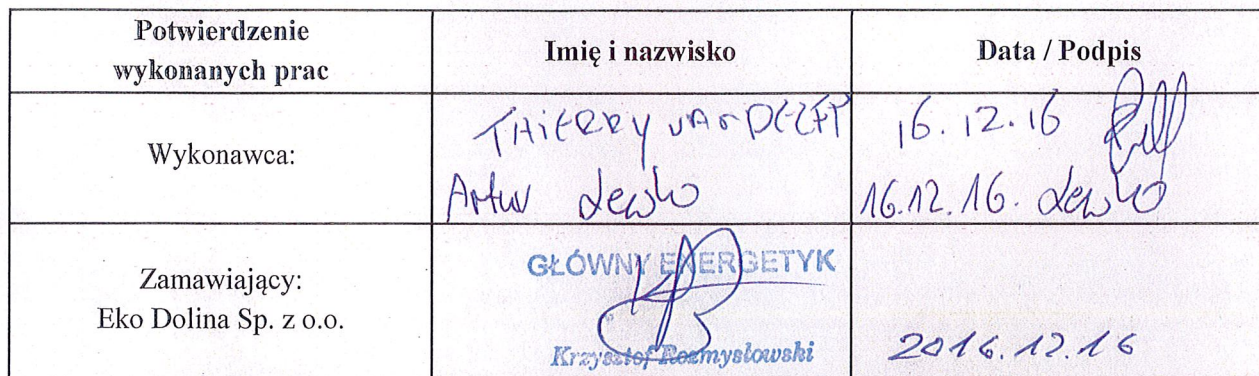 Potwierdzenie
wykonanych prac
Imię i nazwisko
Data / Podpis
Wykonawca:
THIERRY
16.12.16
Artur Lewko
16.12.16. Lewko
Zamawiający:
Eko Dolina Sp. z o.o.
GŁÓWNY ENERGETYK
Krzysztof Rozmysłowski
2016.12.16